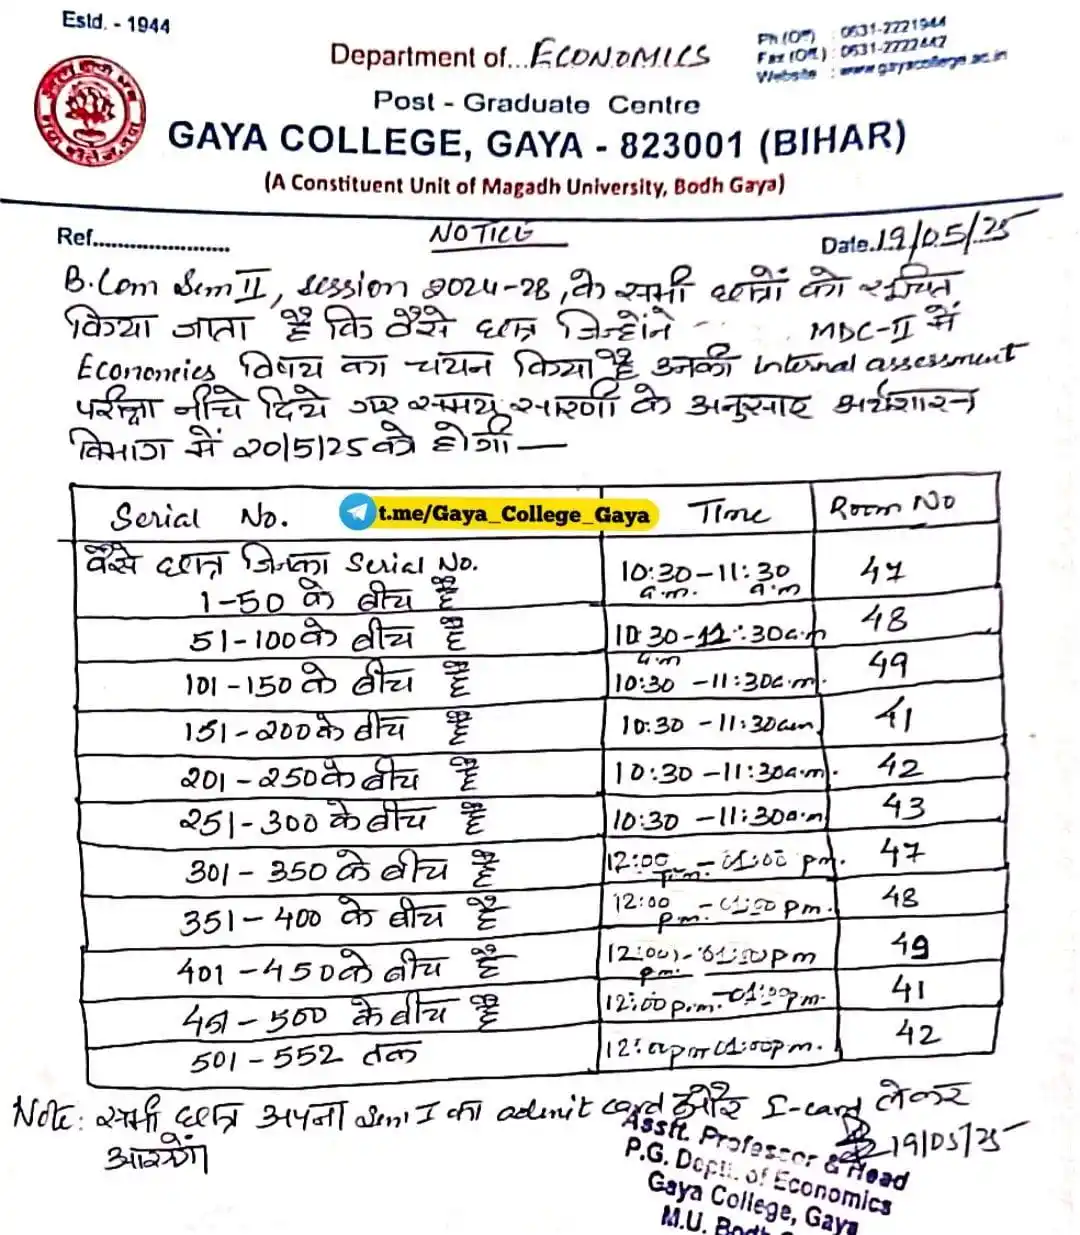 Estd. - 1944
Department of...ECONOMICS
Ph (Off) : 0631-2221944
Fax (Off.) : 0631-2222442
Website : www.gayacollege.ac.in
Post - Graduate Centre
GAYA COLLEGE, GAYA - 823001 (BIHAR)
(A Constituent Unit of Magadh University, Bodh Gaya)
Ref.......................
NOTICE
Date.19/05/25
B.Com Sem II, session 2024-28, के सभी छात्रों को सूचित
किया जाता है कि वैसे छात्र जिन्होंने MDC-II में
Economics विषय का चयन किया है उनकी internal assessment
परीक्षा नीचे दिये गए समय सारणी के अनुसार अर्थशास्त्र
विभाग में 20/5/25 को होगी —
Serial No. t.me/Gaya_College_Gaya Time Room No
वैसे छात्र जिनका Serial No.
1-50 के बीच है 10:30-11:30 a.m. a.m 47
51-100 के बीच है 10:30-11:30a.m 48
a.m
101-150 के बीच है 10:30-11:30a.m. 49
151-200 के बीच है 10:30-11:30am 41
201-250 के बीच है 10:30-11:30a.m. 42
251-300 के बीच है 10:30-11:30a.m 43
301-350 के बीच है 12:00 - 01:00 pm. 47
351-400 के बीच है 12:00 p.m. - 01:00 pm. 48
401-450 के बीच है 12:00 p.m. - 01:00pm 49
451-500 के बीच है 12:00p.m. - 01:00pm. 41
501-552 तक 12:00pm 01:00p.m. 42
Note: सभी छात्र अपना Sem I का admit card और I-card लेकर
आएंगे।
19/05/25
Asstt. Professor & Head
P.G. Deptt. of Economics
Gaya College, Gaya
M.U.